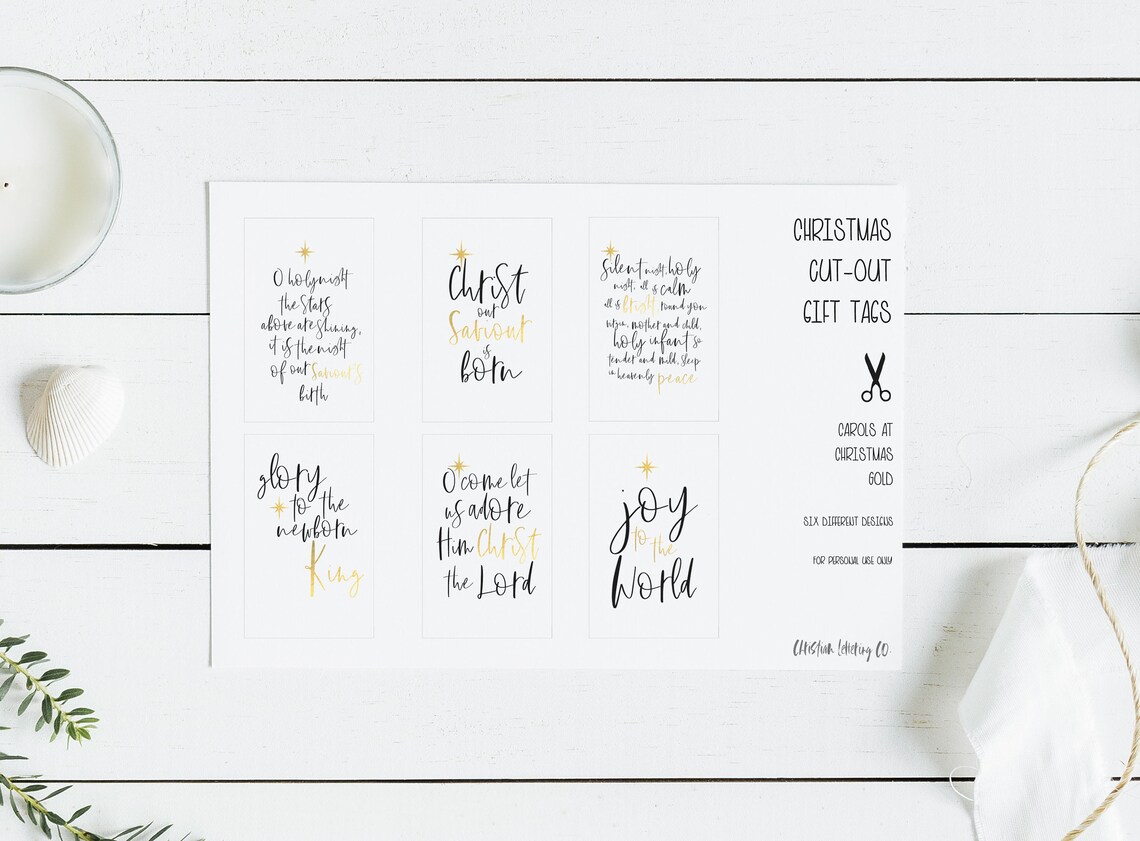 O holy night
the stars
above are shining,
it is the night
of our Saviour's
birth
Christ
our
Saviour
is
born
Silent night, holy
night, all is calm
all is bright round yon
virgin, mother and child,
holy infant so
tender and mild, sleep
in heavenly peace
glory
to the
newborn
King
O come let
us adore
Him Christ
the Lord
joy
to the
World
CHRISTMAS
CUT-OUT
GIFT TAGS
CAROLS AT
CHRISTMAS
GOLD
SIX DIFFERENT DESIGNS
FOR PERSONAL USE ONLY
Christian Lettering Co.